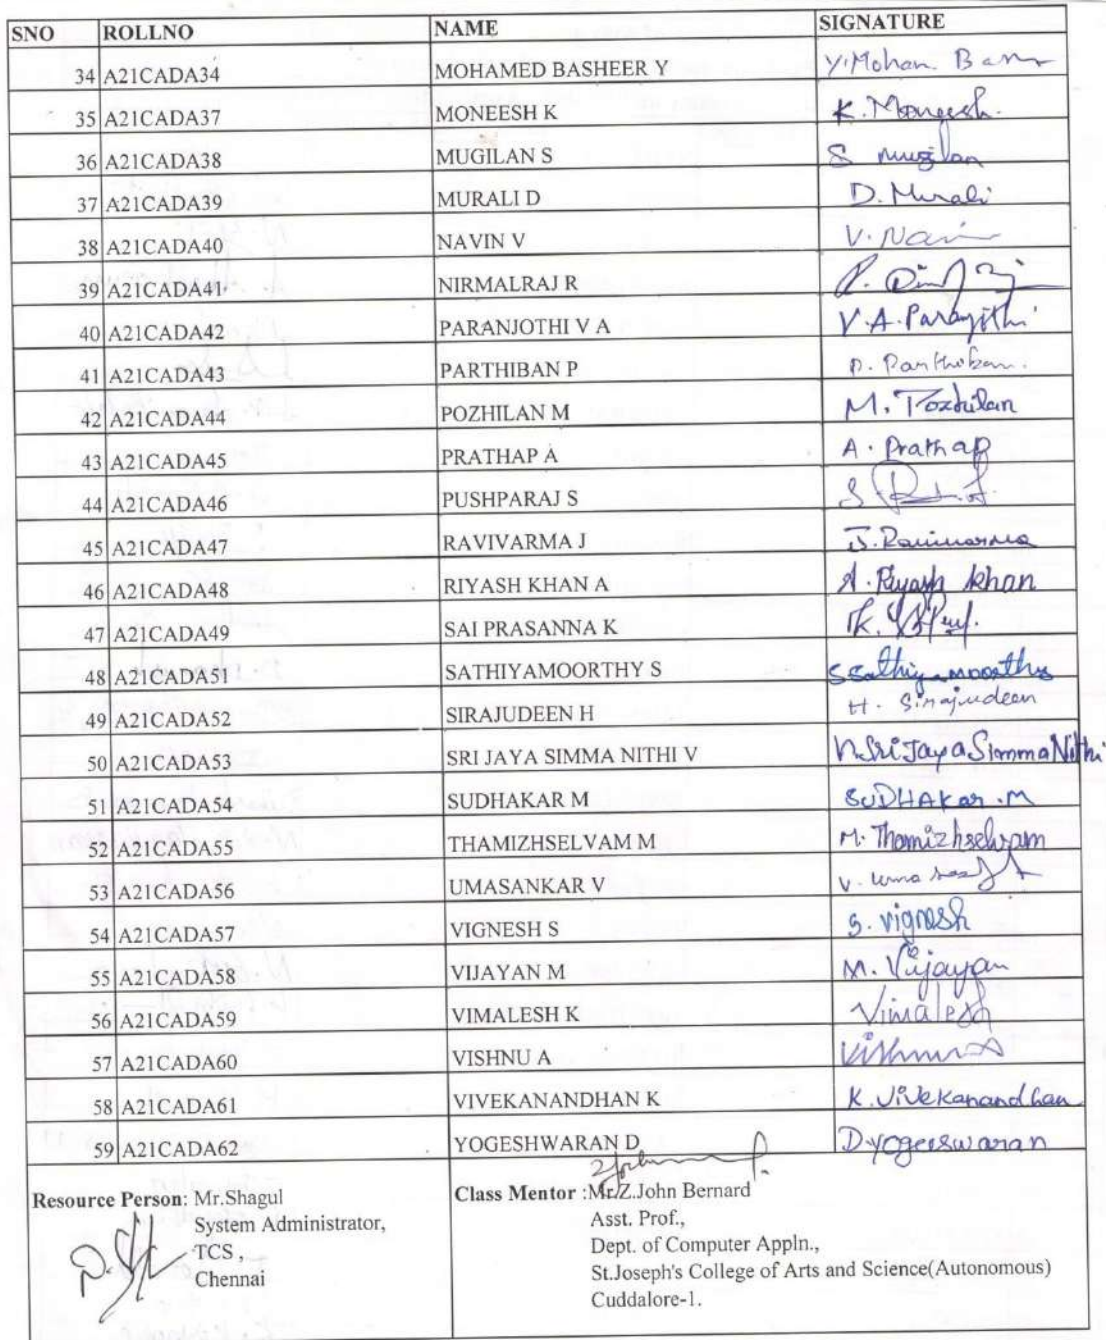 SNO ROLLNO NAME SIGNATURE
34 A21CADA34 MOHAMED BASHEER Y Y.Mohan.
35 A21CADA37 MONEESH K K. Moneesh.
36 A21CADA38 MUGILAN S S mugilan
37 A21CADA39 MURALI D D. Murali
38 A21CADA40 NAVIN V V. Navin
39 A21CADA41 NIRMALRAJ R
40 A21CADA42 PARANJOTHI V A V.A.
41 A21CADA43 PARTHIBAN P P. Parthiban.
42 A21CADA44 POZHILAN M M. Pozhilan
43 A21CADA45 PRATHAP A A. Prathap
44 A21CADA46 PUSHPARAJ S S
45 A21CADA47 RAVIVARMA J J. Ravivarma
46 A21CADA48 RIYASH KHAN A A. Riyash khan
47 A21CADA49 SAI PRASANNA K K.
48 A21CADA51 SATHIYAMOORTHY S S Sathiyamoorthy
49 A21CADA52 SIRAJUDEEN H H. Sirajudeen
50 A21CADA53 SRI JAYA SIMMA NITHI V V. Sri Jaya Simma Nithi
51 A21CADA54 SUDHAKAR M SUDHAKar .M
52 A21CADA55 THAMIZHSELVAM M M. Thamizhselvam
53 A21CADA56 UMASANKAR V V. Uma
54 A21CADA57 VIGNESH S S. vignesh
55 A21CADA58 VIJAYAN M M. Vijayan
56 A21CADA59 VIMALESH K Vimalesh
57 A21CADA60 VISHNU A Vishnu A
58 A21CADA61 VIVEKANANDHAN K K. Vivekanandhan
59 A21CADA62 YOGESHWARAN D D yogeeswaran
Resource Person: Mr.Shagul
System Administrator,
TCS ,
Chennai
Class Mentor :Mr.Z.John Bernard
Asst. Prof.,
Dept. of Computer Appln.,
St.Joseph's College of Arts and Science(Autonomous)
Cuddalore-1.